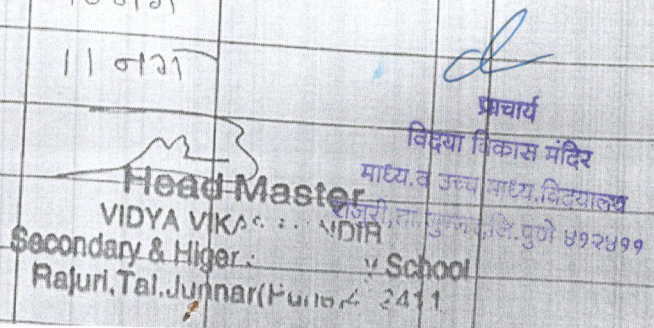 11 नग
प्राचार्य
विद्या विकास मंदिर
माध्य.व उच्च माध्य.विद्यालय
राजुरी,ता.जुन्नर,जि.पुणे ४१२४११
Head Master
VIDYA VIKAS
Secondary & Higer School
Rajuri,Tal.Junnar(Pune) 2411